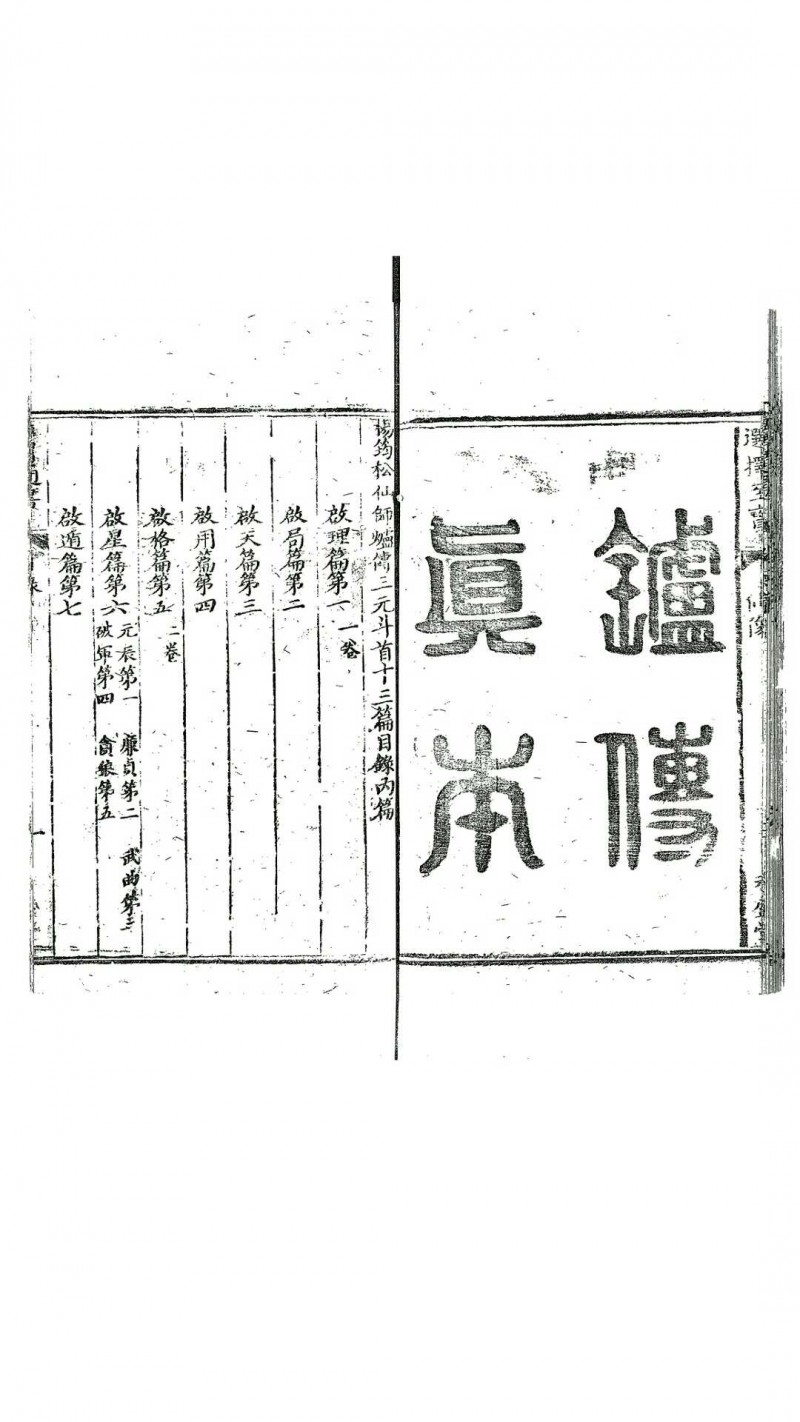 鑪傳
眞本
楊筠松仙師爐傳三元斗首十三篇目錄丙篇
啟理篇第一 一卷
啟局篇第二
啟天篇第三
啟用篇第四
啟格篇第五 二卷
啟星篇第六 元辰第一 廉貞第二 武曲第三
破軍第四 貪狼第五
啟遁篇第七